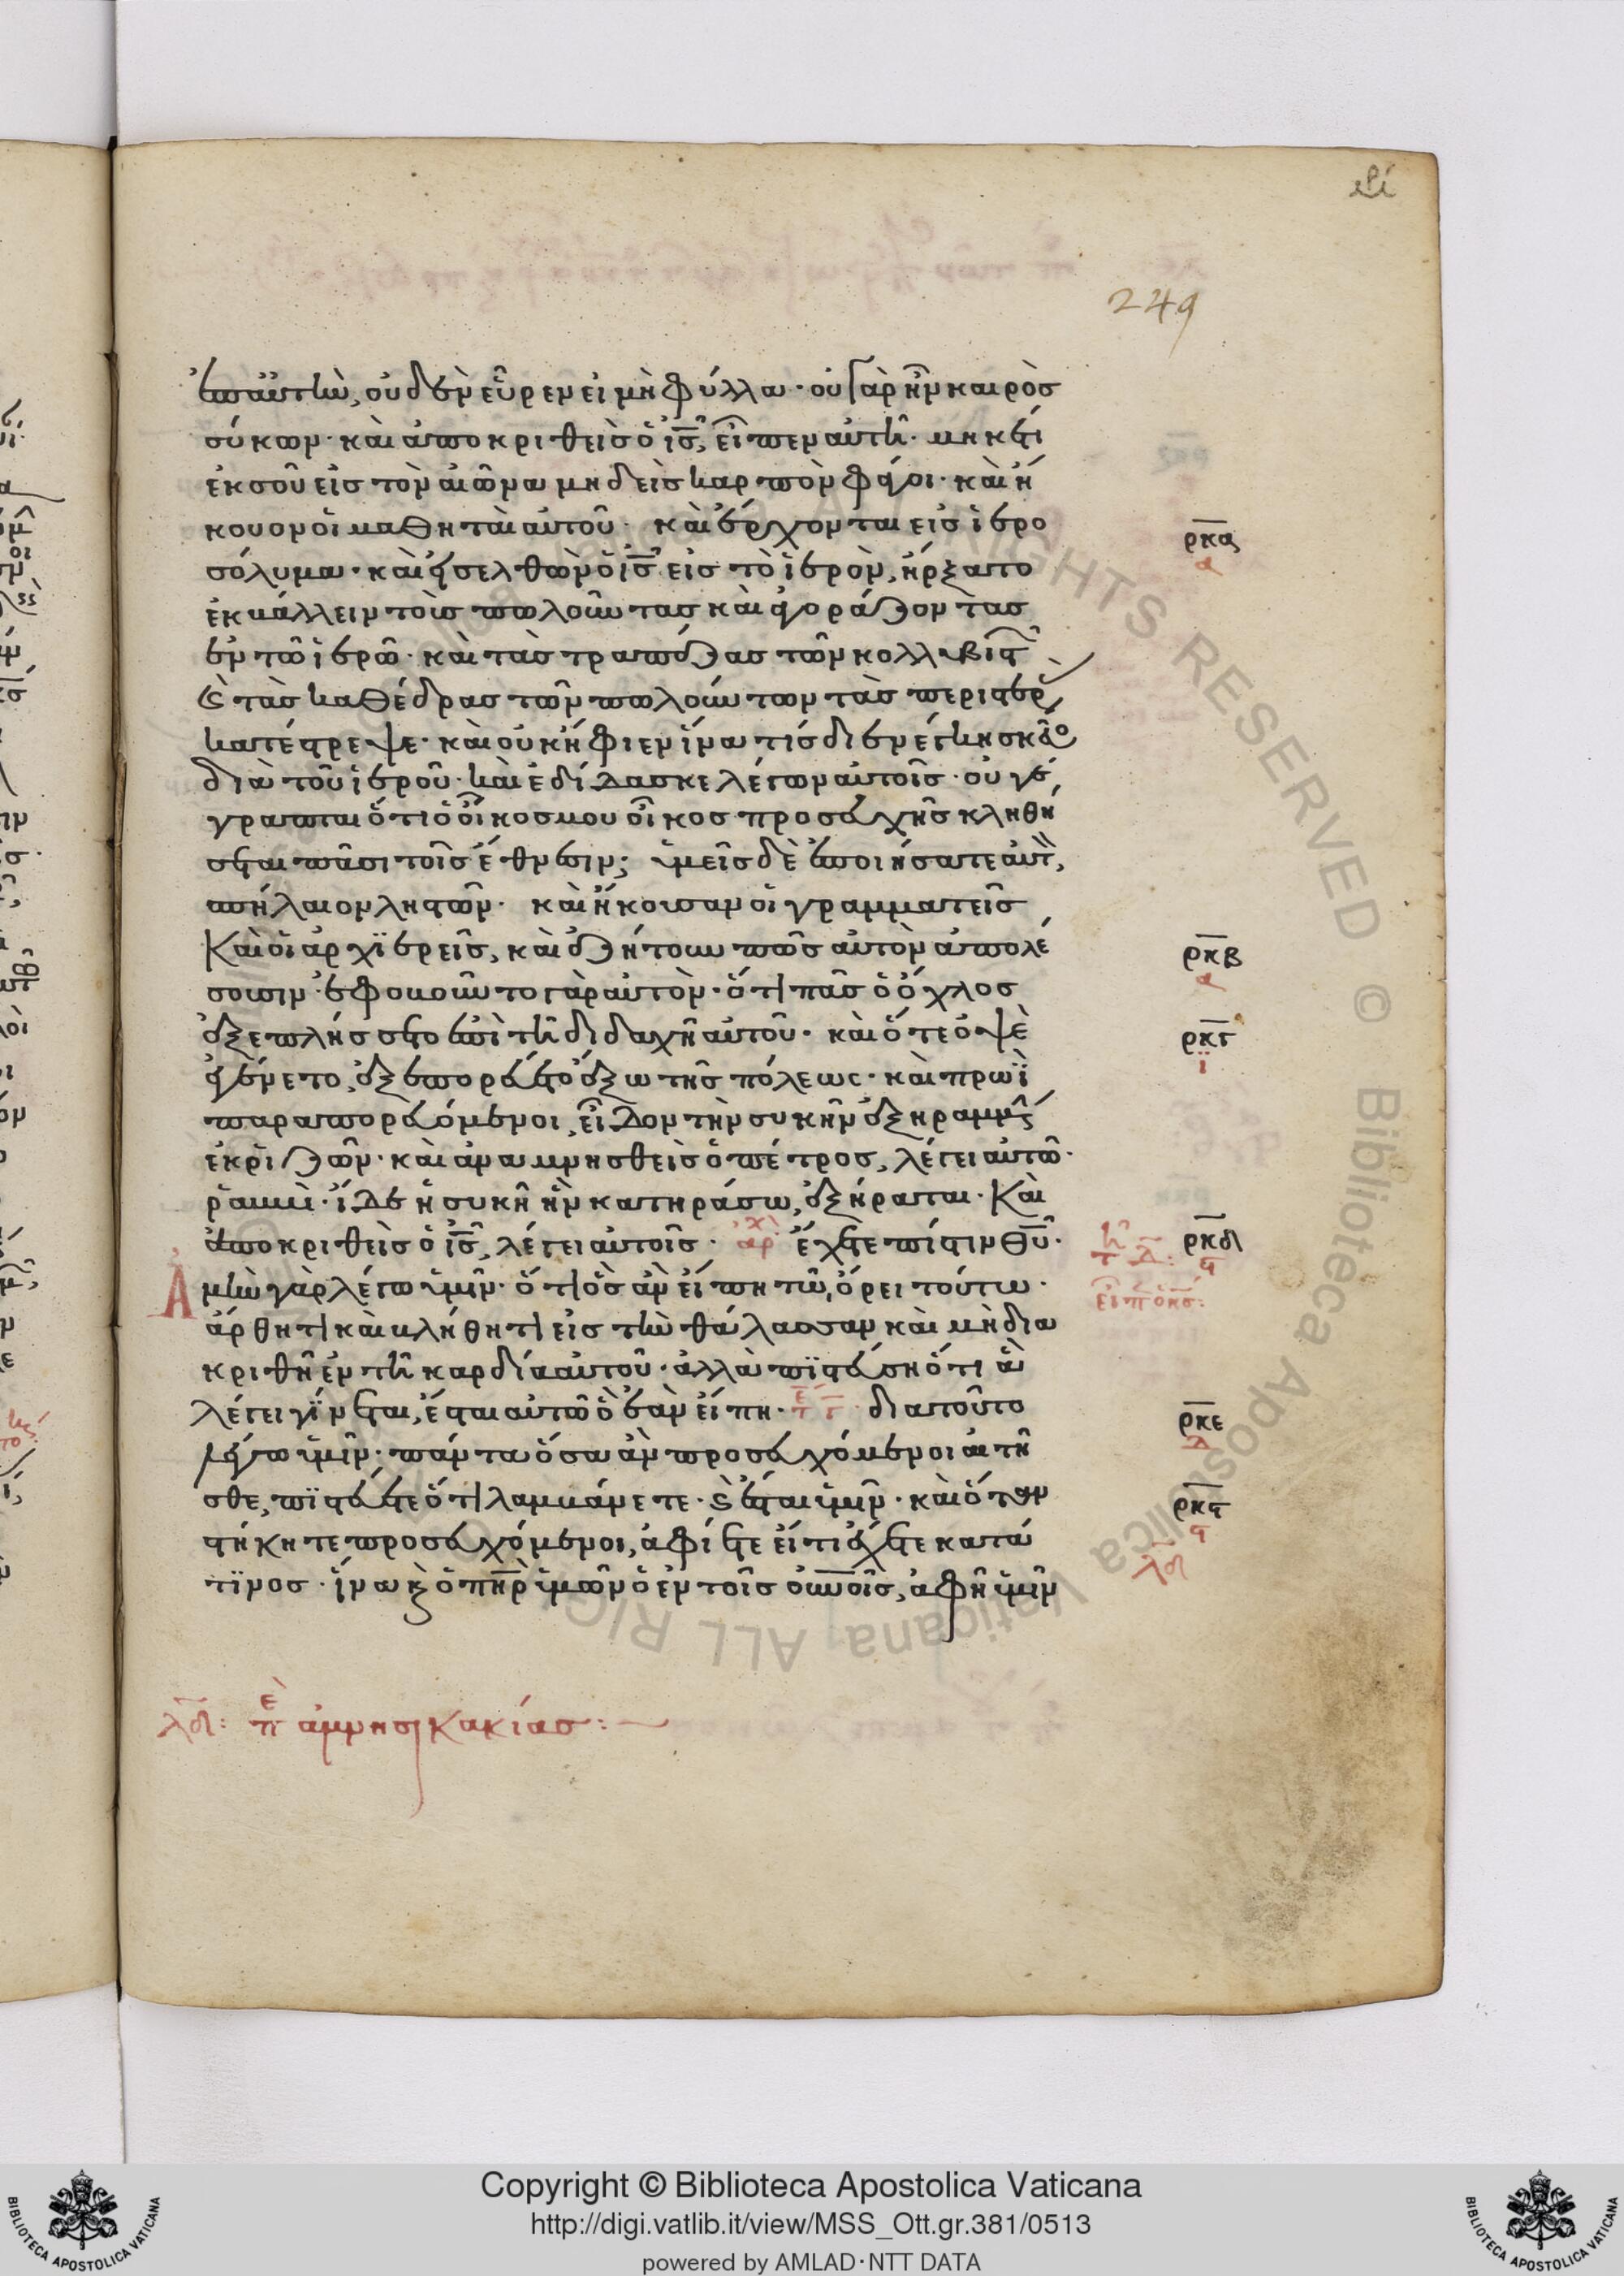 249
ἐπ αὐτὴν, οὐδὲν εὗρεν εἰ μὴ φύλλα· οὐ γὰρ ἦν καιρὸσ
σύκων· καὶ ἀποκριθεὶσ ὁ ις, εἶπεν αὐτῆ· μηκέτι
ἐκ σοῦ εἰσ τὸν αἰῶνα μηδεὶσ καρπὸν φάγοι· καὶ ἤ
κουον οἱ μαθηταὶ αὐτοῦ· καὶ ἔρχονται εἰσ ἱερο
σόλυμα· καὶ εἰσελθὼν ὁ ις εἰσ τὸ ἱερὸν, ἤρξατο
ἐκβάλλειν τοὺσ πωλοῦντασ καὶ ἀγοράζοντασ
ἐν τῶ ἱερῶ· καὶ τὰσ τραπέζασ τῶν κολλυβιστ
καὶ τὰσ καθέδρασ τῶν πωλούντων τὰσ περιστερ
κατέστρεψε· καὶ οὐκ ἤφιεν ἵνα τίσ διενέγκη σκεῦο
διὰ τοῦ ἱεροῦ· καὶ ἐδίδασκε λέγων αὐτοῖσ· οὐ γέ
γραπται ὅτι ὁ οἶκοσ μου οἶκοσ προσευχῆσ κληθή
σεται πᾶσι τοῖσ ἔθνεσιν; ὑμεῖσ δὲ ἐποιήσατε αὐτὸ,
σπήλαιον ληστῶν· καὶ ἤκουσαν οἱ γραμματεῖσ
Καὶ οἱ ἀρχϊερεῖσ, καὶ ἐζήτουν πῶσ αὐτὸν ἀπολέ
σουσιν· ἐφοβοῦντο γὰρ αὐτὸν· ὅτι πᾶσ ὁ ὄχλοσ
ἐξεπλήσσετο ἐπὶ τῆ διδαχῆ αὐτοῦ· καὶ ὅτε ὀψὲ
ἐγένετο, ἐξεπορεύετο ἔξω τῆσ πόλεως· καὶ πρωῒ
παραπορευόμενοι, εἶδον τὴν συκῆν ἐξηραμμέν
ἐκ ῥιζῶν· καὶ ἀναμνησθεὶσ ὁ πέτροσ, λέγει αὐτῶ·
ῥαββὶ· ἴδε ἡ συκῆ ἣν κατηράσω, ἐξήρανται· Καὶ
ἀποκριθεὶσ ὁ ις, λέγει αὐτοῖσ· ἀρχ ἔχετε πίστιν θυ·
Ἀμὴν γὰρ λέγω ὑμῖν· ὅτι ὃσ ἂν εἴπη τῶ ὄρει τούτω·
ἄρθητι καὶ βλήθητι εἰσ τὴν θάλασσαν καὶ μὴ δια
κριθῆ ἐν τῆ καρδία αὐτοῦ· ἀλλὰ πϊστεύση ὅτι ἃ
λέγει γίνεται, ἔσται αὐτῶ ὃ ἐὰν εἴπη· διατοῦτο
λέγω ὑμῖν· πάντα ὅσα ἂν προσευχόμενοι αἰτῆ
σθε, πϊστεύετε ὅτι λαμβάνετε· καὶ ἔσται ὑμῖν· καὶ ὅταν
στήκητε προσευχόμενοι, ἀφίετε εἴ τι ἔχετε κατά
τϊνοσ· ἵνα καὶ ὁ πηρ ὑμῶν ὁ ἐν τοῖσ οὐνοῖσ, ἀφῆ ὑμῖν
λδ: πε ἀμνησικακίασ:
ρκα
α
ρκβ
α
ρκγ
ι
ρκδ
ς
εἶπ ὁ κσ:
ρκε
δ
ρκς
ς
λδ
RIGHTS RESERVED © Biblioteca Apostolica Vaticana ALL RIG
Copyright © Biblioteca Apostolica Vaticana
http://digi.vatlib.it/view/MSS_Ott.gr.381/0513
powered by AMLAD·NTT DATA
BIBLIOTECA APOSTOLICA VATICANA
BIBLIOTECA APOSTOLICA VATICANA